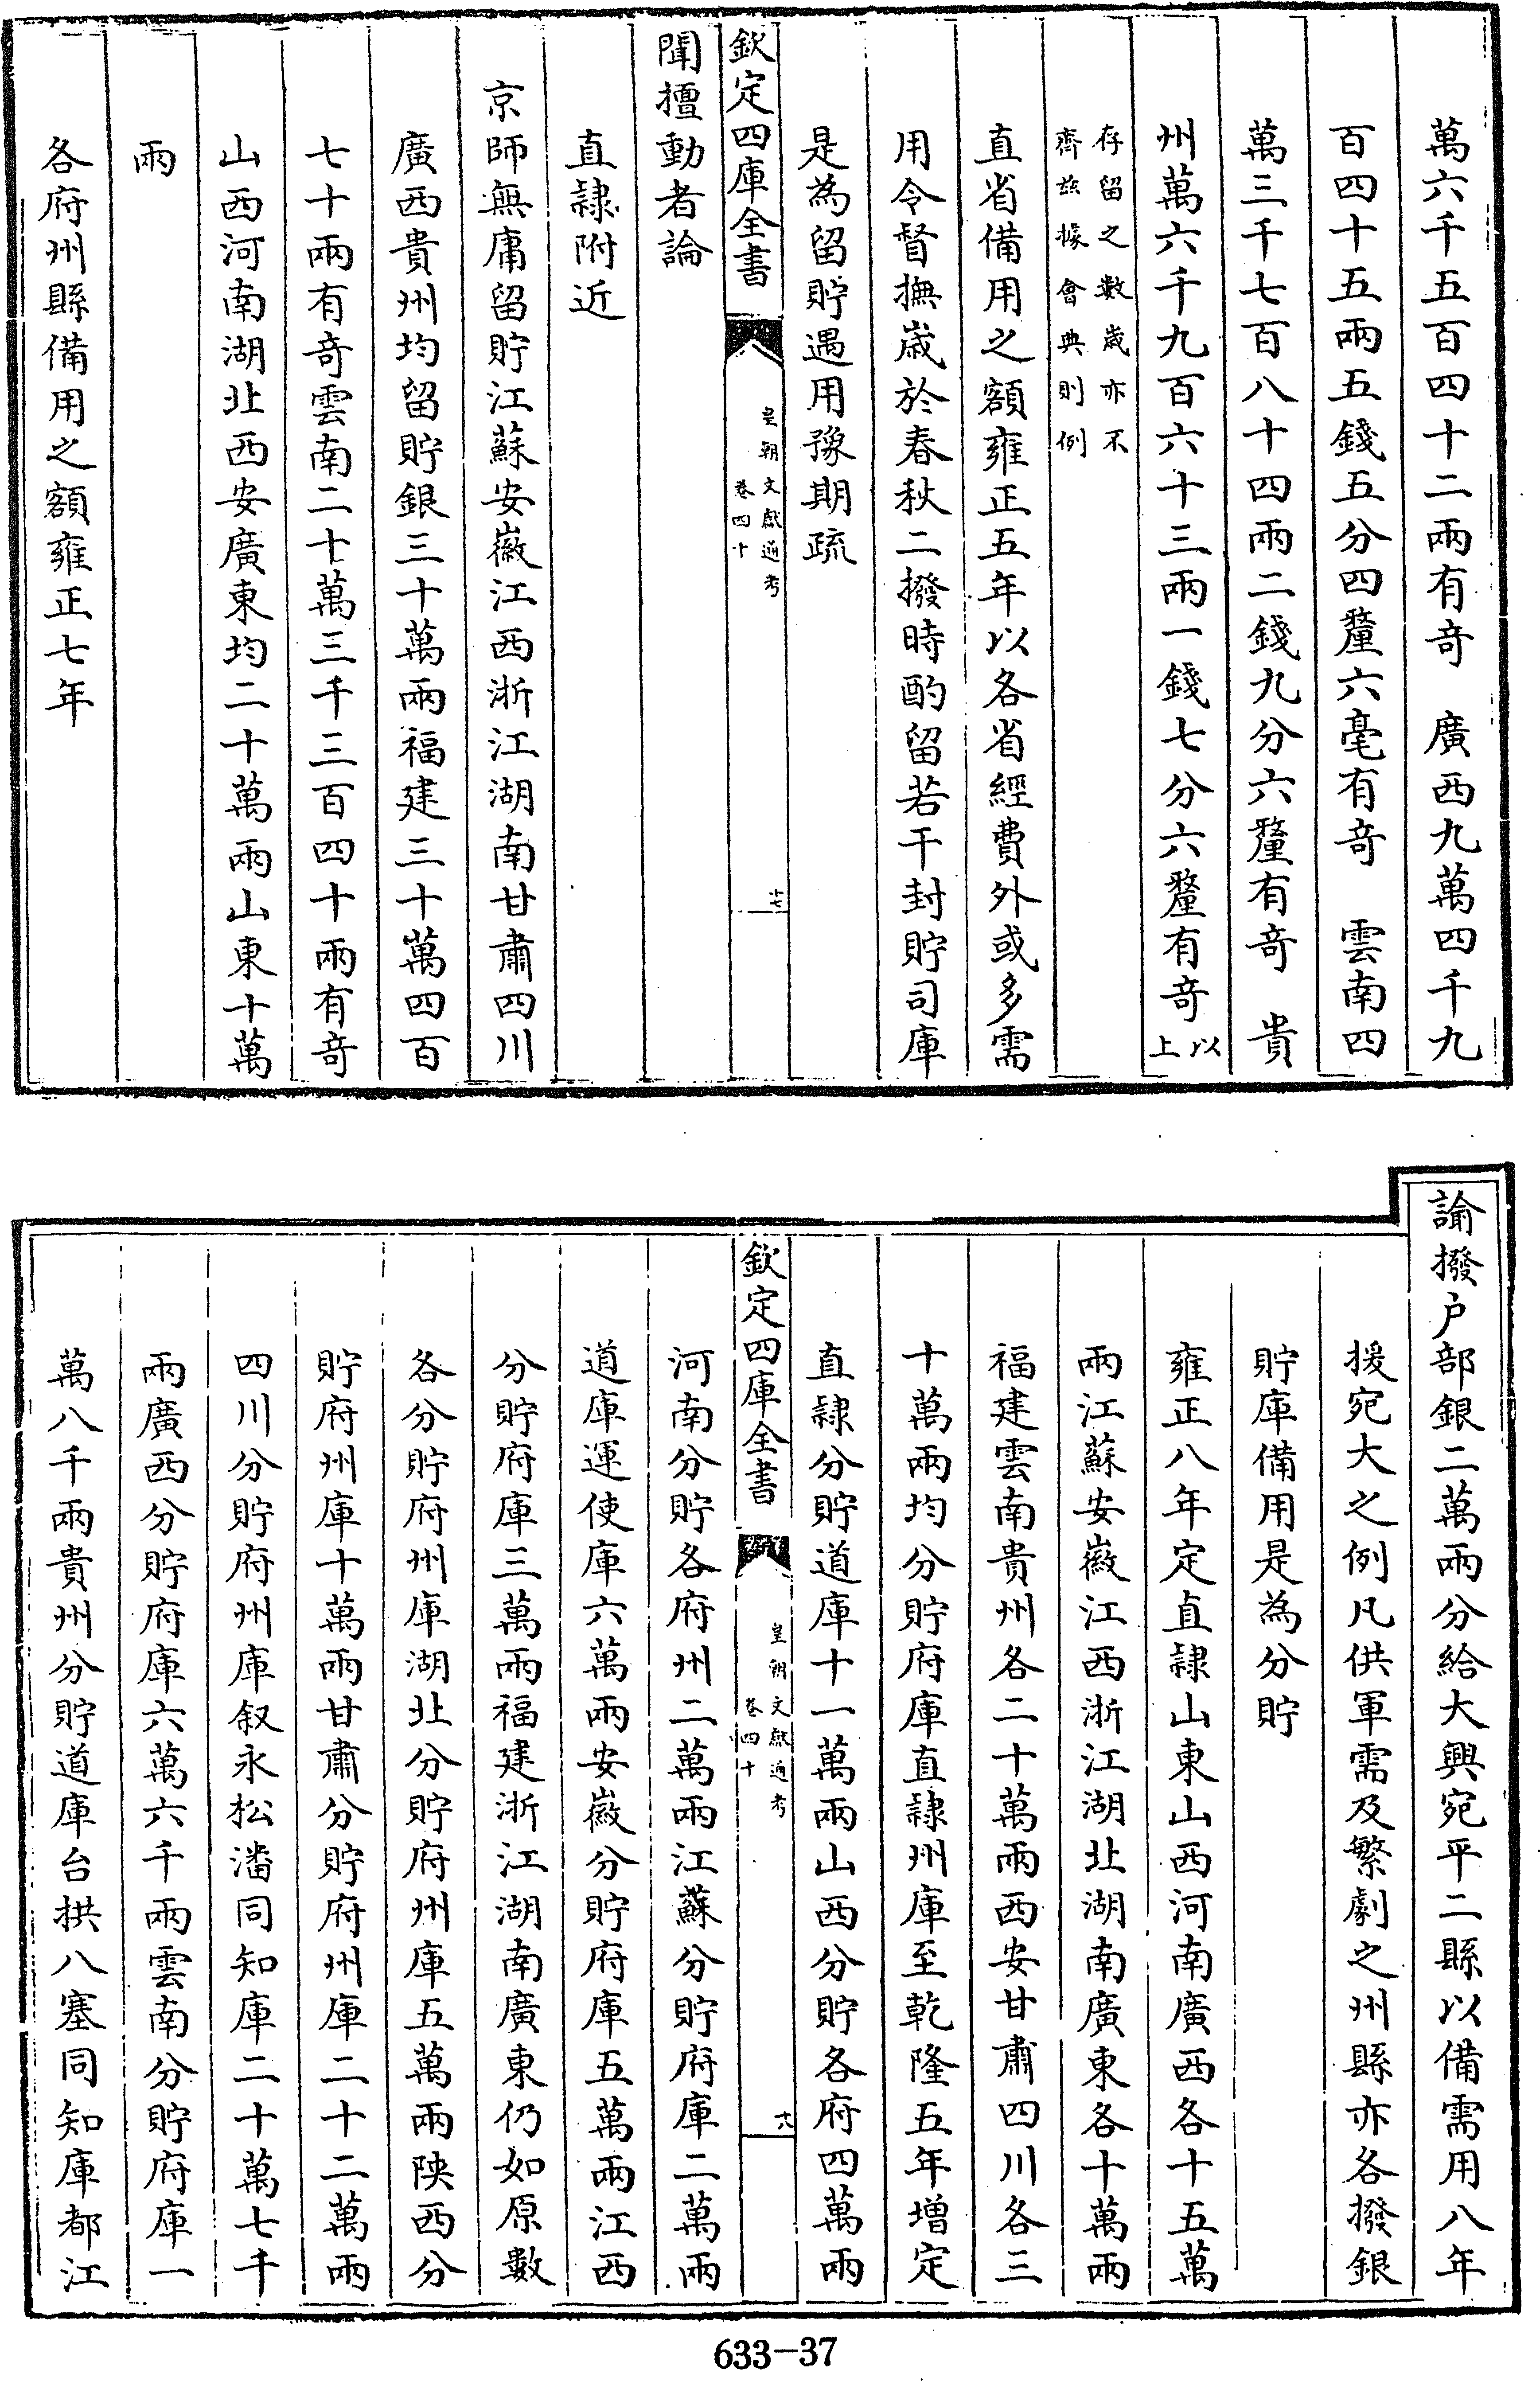 萬六千五百四十二兩有奇　廣西九萬四千九
百四十五兩五錢五分四釐六毫有奇　雲南四
萬三千七百八十四兩二錢九分六釐有奇　貴
州萬六千九百六十三兩一錢七分六釐有奇以上
存留之數歲亦不
齊兹據會典則例
直省備用之額雍正五年以各省經費外或多需
用令督撫歲於春秋二撥時酌留若干封貯司庫
是為留貯遇用豫期疏
欽定四庫全書
皇朝文獻通考
卷四十
十七
聞擅動者論
直隸附近
京師無庸留貯江蘇安徽江西浙江湖南甘肅四川
廣西貴州均留貯銀三十萬兩福建三十萬四百
七十兩有奇雲南二十萬三千三百四十兩有奇
山西河南湖北西安廣東均二十萬兩山東十萬
兩
各府州縣備用之額雍正七年
諭撥户部銀二萬兩分給大興宛平二縣以備需用八年
援宛大之例凡供軍需及繁劇之州縣亦各撥銀
貯庫備用是為分貯
雍正八年定直隸山東山西河南廣西各十五萬
兩江蘇安徽江西浙江湖北湖南廣東各十萬兩
福建雲南貴州各二十萬兩西安甘肅四川各三
十萬兩均分貯府庫直隸州庫至乾隆五年增定
直隸分貯道庫十一萬兩山西分貯各府四萬兩
欽定四庫全書
皇朝文獻通考
卷四十
十八
河南分貯各府州二萬兩江蘇分貯府庫二萬兩
道庫運使庫六萬兩安徽分貯府庫五萬兩江西
分貯府庫三萬兩福建浙江湖南廣東仍如原數
各分貯府州庫湖北分貯府州庫五萬兩陜西分
貯府州庫十萬兩甘肅分貯府州庫二十二萬兩
四川分貯府州庫叙永松潘同知庫二十萬七千
兩廣西分貯府庫六萬六千兩雲南分貯府庫一
萬八千兩貴州分貯道庫台拱八塞同知庫都江
633-37